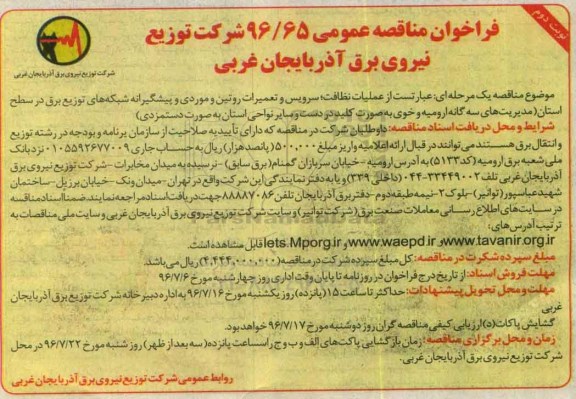 نوبت دوم
فراخوان مناقصه عمومی ۹۶/۶۵ شرکت توزیع
نیروی برق آذربایجان غربی
شرکت توزیع نیروی برق آذربایجان غربی
موضوع مناقصه یک مرحله ای: عبارتست از عملیات نظافت؛ سرویس و تعمیرات روتین و موردی و پیشگیرانه شبکه‌های توزیع برق در سطح
استان (مدیریت‌های سه گانه ارومیه و خوی به صورت کلید در دست و سایر نواحی استان به صورت دستمزدی)
شرایط و محل دریافت اسناد مناقصه: داوطلبان شرکت در مناقصه که دارای تأییدیه صلاحیت از سازمان برنامه و بودجه در رشته توزیع
و انتقال برق هستند می‌توانند در قبال ارائه اعلامیه واریز مبلغ ۵۰۰,۰۰۰ (پانصد هزار) ریال به حساب جاری ۰۱۰۵۵۹۲۶۷۷۰۰۹ نزد بانک
ملی شعبه برق ارومیه (کد ۵۱۳۳) به آدرس ارومیه - خیابان سربازان گمنام (برق سابق) - نرسیده به میدان مخابرات - شرکت توزیع نیروی برق
آذربایجان غربی تلفن ۰۲-۳۳۴۴۹۰-۰۴۴ (داخلی ۳۳۹) و یا به دفتر نمایندگی این شرکت واقع در تهران - میدان ونک - خیابان برزیل - ساختمان
شهید عباسپور (توانیر) - بلوک ۲ - نیمه طبقه دوم - دفتر برق آذربایجان تلفن ۸۸۸۸۷۰۸۶ جهت دریافت اسناد مراجعه نمایند. ضمنا اسناد مناقصه
در سایت‌های اطلاع رسانی معاملات صنعت برق (شرکت توانیر) و سایت شرکت توزیع نیروی برق آذربایجان غربی و سایت ملی مناقصات به
ترتیب آدرس های:
www.tavanir.org.ir و www.waepd.ir و iets.Mporg.ir قابل مشاهده است.
مبلغ سپرده شکرت در مناقصه: کل مبلغ سپرده شرکت در مناقصه (۴,۴۴۴,۰۰۰,۰۰۰) ریال می‌باشد.
مهلت فروش اسناد: از تاریخ درج فراخوان در روزنامه تا پایان وقت اداری روز چهارشنبه مورخ ۹۶/۷/۶
مهلت و محل تحویل پیشنهادات: حداکثر تا ساعت ۱۵ (پانزده) روز یکشنبه مورخ ۹۶/۷/۱۶ به اداره دبیرخانه شرکت توزیع نیروی برق آذربایجان
غربی
گشایش پاکات (د) ارزیابی کیفی مناقصه گران روز دوشنبه مورخ ۹۶/۷/۱۷ خواهد بود.
زمان و محل برگزاری مناقصه: زمان بازگشایی پاکت‌های الف و ب و ج راس ساعت پانزده (سه بعد از ظهر) روز شنبه مورخ ۹۶/۷/۲۲ در محل
شرکت توزیع نیروی برق آذربایجان غربی.
روابط عمومی شرکت توزیع نیروی برق آذربایجان غربی